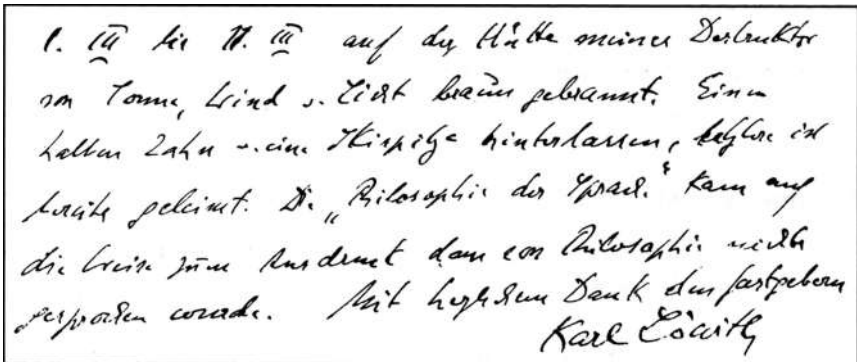 1. III bis 11. III auf der Hütte meines Destruktor
von Sonne, Wind u. Licht braun gebrannt. Einen
halben Zahn u. eine Skispitze hinterlassen, letztere ist
bereits geleimt. Die „Philosophie der Sprache“ kam auf
die Weise zum Ausdruck dass von Philosophie nichts
gesprochen wurde. Mit herzlichem Dank den Gastgebern
Karl Löwith